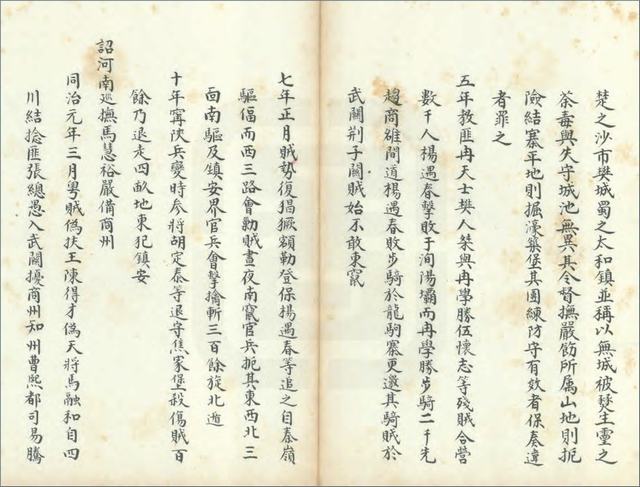 楚之沙市樊城蜀之太和鎮並稱以無城被焚生靈之
荼毒與失守城池無異其令督撫嚴飭所属山地則扼
險結寨平地則掘濠築堡其團練防守有效者保奏違
者罪之
五年教匪冉天士樊人桀與冉學勝伍懷志等殘賊合營
数千人楊遇春擊敗于洵陽壩而冉學勝步騎二千先
趨商雒間道楊遇春敗步騎於龍駒寨更邀其騎賊於
武關荆子關賊始不敢東竄
七年正月賊勢復猖獗額勒登保楊遇春等追之自秦嶺
驅偪而西三路會勦賊晝夜南竄官兵扼其東西北三
面南驅及鎮安界官兵會擊擒斬三百餘旋北遁
十年甯陝兵變時參將胡定泰等退守焦家堡殺傷賊百
餘乃退走四畝地東犯鎮安
詔河南巡撫馬慧裕嚴備商州
同治元年三月粵賊偽扶王陳得才偽天將馬融和自四
川結捻匪張總愚入武關擾商州知州曹熙都司易騰